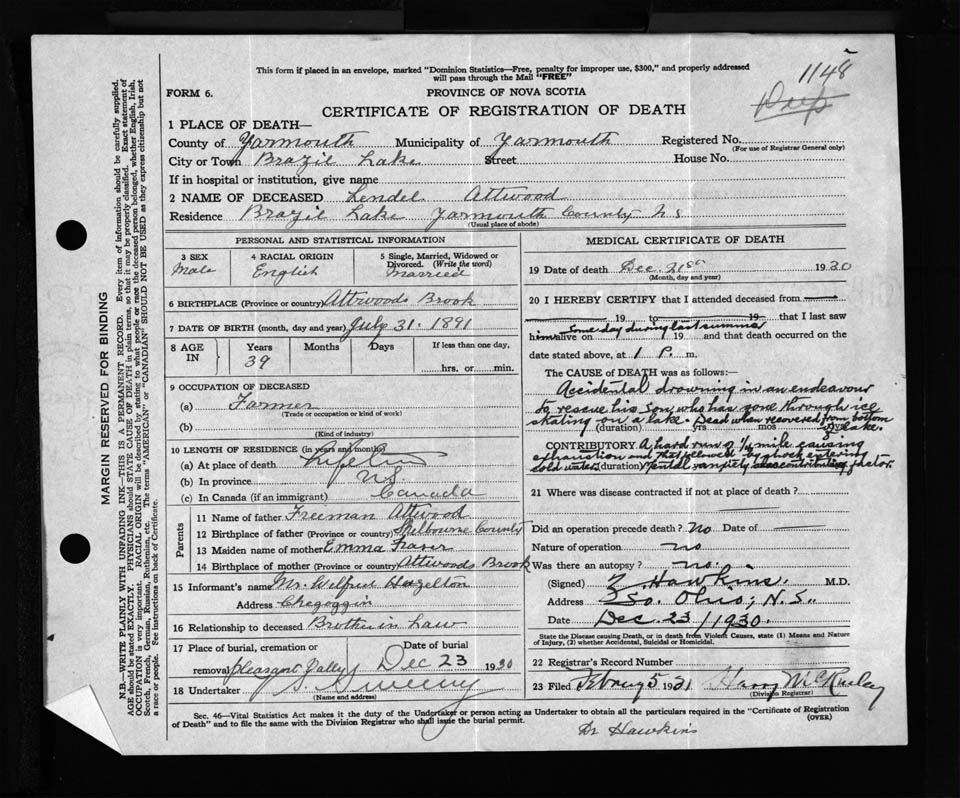 This form if placed in an envelope, marked "Dominion Statistics—Free, penalty for improper use, $300," and properly addressed
will pass through the Mail "FREE"
1148
FORM 6.
PROVINCE OF NOVA SCOTIA
CERTIFICATE OF REGISTRATION OF DEATH
1 PLACE OF DEATH—
County of Yarmouth Municipality of Yarmouth Registered No.
(For use of Registrar General only)
City or Town Brazil Lake Street House No.
If in hospital or institution, give name
2 NAME OF DECEASED Lendel Attwood
Residence Brazil Lake Yarmouth County N S
(Usual place of abode)
PERSONAL AND STATISTICAL INFORMATION
3 SEX
Male
4 RACIAL ORIGIN
English
5 Single, Married, Widowed or
Divorced. (Write the word)
Married
6 BIRTHPLACE (Province or country) Attwoods Brook
7 DATE OF BIRTH (month, day and year) July 31. 1891
8 AGE IN
Years Months Days If less than one day,
39
hrs. or min.
9 OCCUPATION OF DECEASED
(a) Farmer
(Trade or occupation or kind of work)
(b)
(Kind of industry)
10 LENGTH OF RESIDENCE (in years and months)
(a) At place of death
(b) In province N S
(c) In Canada (if an immigrant) Canada
Parents
11 Name of father Freeman Attwood
12 Birthplace of father (Province or country) Shelbourne County
13 Maiden name of mother Emma
14 Birthplace of mother (Province or country) Attwoods Brook
15 Informant's name Mr. Wilfred Hazelton
Address Chegoggin
16 Relationship to deceased Brother in Law
17 Place of burial, cremation or
removal Pleasant Valley
Date of burial
Dec 23 1930
18 Undertaker Sweeny
(Name and address)
MEDICAL CERTIFICATE OF DEATH
19 Date of death Dec. 21st 1930
(Month, day and year)
20 I HEREBY CERTIFY that I attended deceased from
19 to 19 that I last saw
him alive on Some day during last summer 19 and that death occurred on the
date stated above, at 1 P. m.
The CAUSE of DEATH was as follows:—
Accidental drowning in an endeavour
to rescue his son, who has gone through ice
skating on a lake. Dead when recovered from bottom
(duration) yrs mos of lake.
CONTRIBUTORY A hard run of 1/4 mile causing
exhaustion and that followed by shock entering
cold water (duration) Mental anxiety contributing factor.
21 Where was disease contracted if not at place of death?
Did an operation precede death? No Date of
Nature of operation no
Was there an autopsy? no.
(Signed) Hawkins. M.D.
Address So. Ohio, N.S.
Date Dec 23/1930.
State the Disease causing Death, or in death from Violent Causes, state (1) Means and Nature
of Injury, (2) whether Accidental, Suicidal or Homicidal.
22 Registrar's Record Number
23 Filed 5 1931 Harry
(Division Registrar)
Sec. 46—Vital Statistics Act makes it the duty of the Undertaker or person acting as Undertaker to obtain all the particulars required in the "Certificate of Registration
of Death" and to file the same with the Division Registrar who shall issue the burial permit.
(OVER)
Dr Hawkins
MARGIN RESERVED FOR BINDING
N.B.—WRITE PLAINLY WITH UNFADING INK—THIS IS A PERMANENT RECORD. Every item of information should be carefully supplied.
AGE should be stated EXACTLY. PHYSICIANS should STATE CAUSE OF DEATH in plain terms, so that it may be properly classified. Exact statement of
OCCUPATION is very important. RACIAL ORIGIN will be described by stating to what people or race the deceased person belonged, whether English, Irish,
Scotch, French, German, Russian, Ruthenian, etc. The terms "AMERICAN" or "CANADIAN" SHOULD NOT BE USED as they express citizenship but not
a race or people. See instructions on back of Certificate.